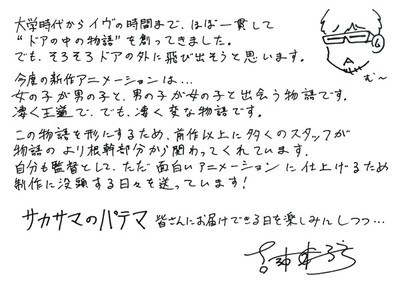 大学時代からイヴの時間まで、ほぼ一貫して
“ドアの中の物語”を創ってきました。
でも、そろそろドアの外に飛び出そうと思います。
む〜
今度の新作アニメーションは…
女の子が男の子と、男の子が女の子と出会う物語です。
凄く王道で、でも、凄く変な物語です。
この物語を形にするため、前作以上に多くのスタッフが
物語のより根幹部分から関わってくれています。
自分も監督として、ただ面白いアニメーションに仕上げるため
新作に没頭する日々を送っています!
サカサマのパテマ 皆さんにお届けできる日を楽しみにしつつ…
吉浦康裕